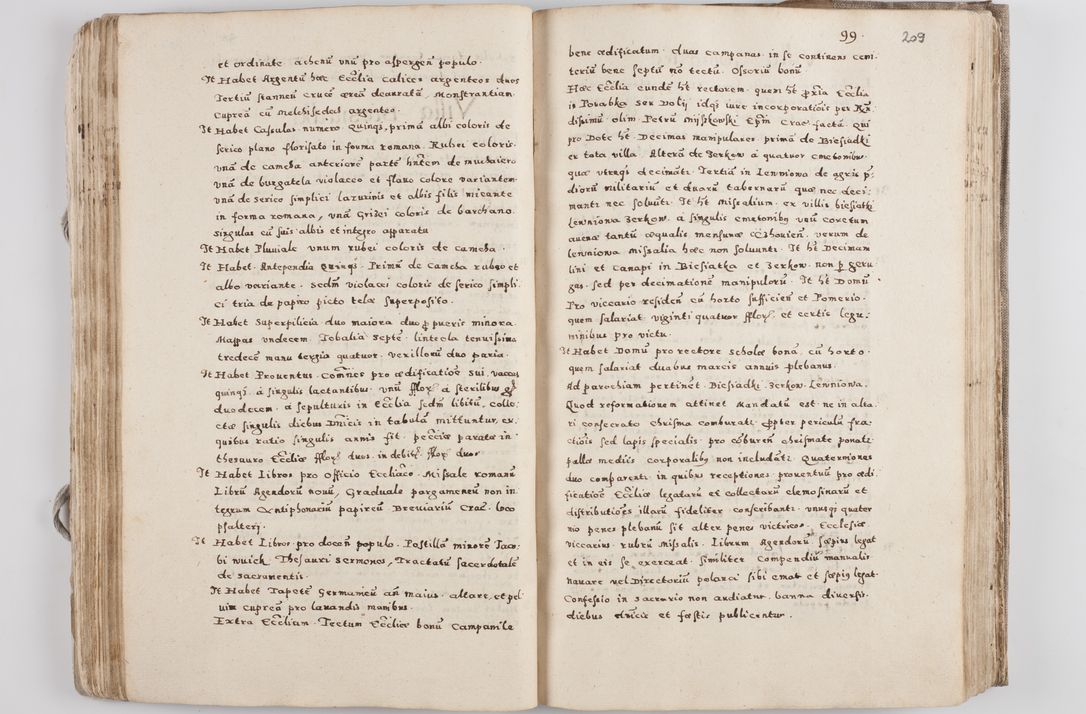 et ordinate achenū unū pro aspergen populo.
It Habet Argentū hæc Ecclīa calices argenteos duos
Tertiū stanneū crucē æreā deauratā, Monstrantiam
Cupreā cū Melchisedec argenteo.
It Habet Casulas numero quinqȝ, primā albi coloris de
serico plano florisato in forma romana. Rubei coloris
unā de camcha anteriorē partē hntem de muchaiero
unā de burgatela violaceo et flavo colore variantem
unā de serico simplici lazurinis et albis filis micante
in forma romana, unā Grisei coloris de barchano.
singulas cū suis albis et integro apparatu
It Habet Pluviale unum rubei coloris de camcha.
It Habet. Antependia quinqȝ. Primū de camcha rubeo et
albo variante. sedm violacei coloris de serico simpli
ci tria de papiro picto telæ superposito.
It Habet Superpilicia duo maiora duo p pueris minora.
Mappas undecem. Tobalia septē. linteola tenuissima
tredecē manutergia quatuor. vexillorū duo paria.
It Habet Proventus. Comnes pro ædificatioē sui. vaccas
quinqȝ. a singulis lactantibus unū fflorꝫ a sterilibus gr
duodecem. a sepulturis in Ecclīa sedm libitū, colle,
ctæ singulis diebus Dnicis in tabulā mittuntur, ex,
quibus ratio singulis annis fit. pecciæ paratæ in
thesauro Ecclīæ fflorꝫ duos. in debitꝫ fflor duos
It Habet Libros pro officio Eccliāco. Missale romanū
Librū Agendorū novū, Graduale pargameneū non in
tegrum Antiphonariū papireū Breviariū Crac. loco
psalterij.
It Habet Libros pro docen populo. Postillā minorē Jaco,
bi wuick, Thesauri sermones, Tractatū sacerdotalē
de sacramentis.
It Habet Tapetē Germaneū añ maius. altare, et pel
vim cupreā pro lavandis manibus.
Extra Eccliam. Tectum Ecclīæ bonū Campanile
99. 209
bene ædificatum. duas campanas in se continens cem
teriū bene septū nō tectū. Ossoriū bonū
Hæc Ecclīa eundē ht rectorem. quem ht pria Ecclīa
is Porabka seu Dolij idqȝ iure incorporatiōis per Rn̄
dissimū olim Petrū Mijszkowski Epm Crac factā. Qui
pro Dote ht. Decimas manipulares. primā de Biesiadki
ex tota villa. Alterā de Zerkow a quatuor cmetonibus
quæ utraqȝ decimatꝫ. Tertiā in Lewniowa de agrū p̄,
diorū militariū et duarū tabernarū quæ nec deci:
mantꝫ nec solvutꝫ. It ht Missalium. ex villis biesiatki
lewniowa Zerkow. a singulis cmetonibȝ unū coretum
avenæ tantū æqualis mensuræ Czchovien. verum de
lewniowa missalia hæc non solvuntꝫ. It ht Decimam
lini et canapi in Biesiatka et Zerkow. non p geru
gas. sed per decimatioēm manipulorū. It ht Domū
Pro viccario residen cū horto sufficien et Pomerio.
quem salariat viginti quatuor fflorꝫ. et certis legu:
minibus pro victu.
It Habet Domū pro rectore scholæ bonā. cū horto.
quem salariat duabus marcis annuis plebanus.
Ad parochiam pertinet. Biesiadki. Zerkow. Lewniowa.
Quod reformationem attinet Mandatū est. ne in alta
ri consecrato chrisma comburatꝫ. propter periculū fra,
ctiōis sed lapis specialis. pro cōburen chrismate ponatꝫ
pallæ mediis corporalibȝ non includātꝫ. Quaterniones
duo comparentꝫ. in quibus receptiones. proventuū pro ædi
ficatioē Ecclīæ legatarū et collectarū elemosinarū et
distributiōes illarū fideliter conscribantꝫ. unusqȝ quater
nio penes plebanū sit alter penes vitricos. Ecclesiæ.
viccarius. rubrū Missalis. Librum Agendorū sæpius legat
et in eis se exerceat. similiter Compendiū manualis
Navare vel Directoriū polanci sibi emat et sæpiȝ legat.
Confessio in sacrario non audiatur. banna diversis.
diebus dnicis et festis publicentur.